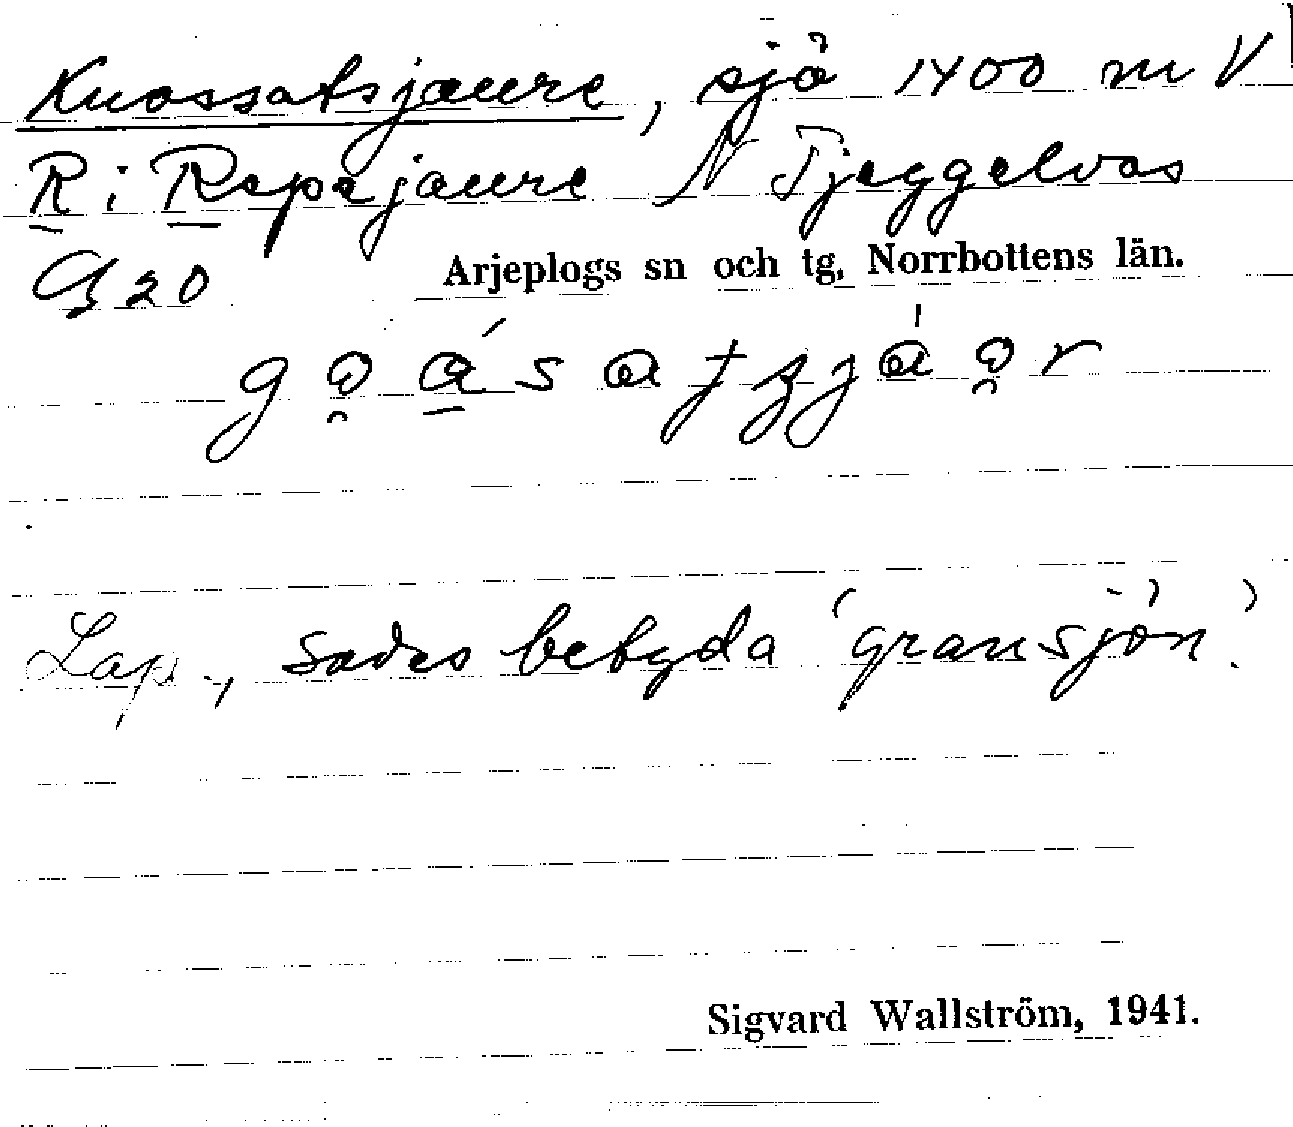 Kuossatsjaure, sjö 1400 m V
R i Repejaure N Tjeggelvas
G 20 Arjeplogs sn och tg, Norrbottens län.
Lap., sades betyda 'gransjön'.
Sigvard Wallström, 1941.